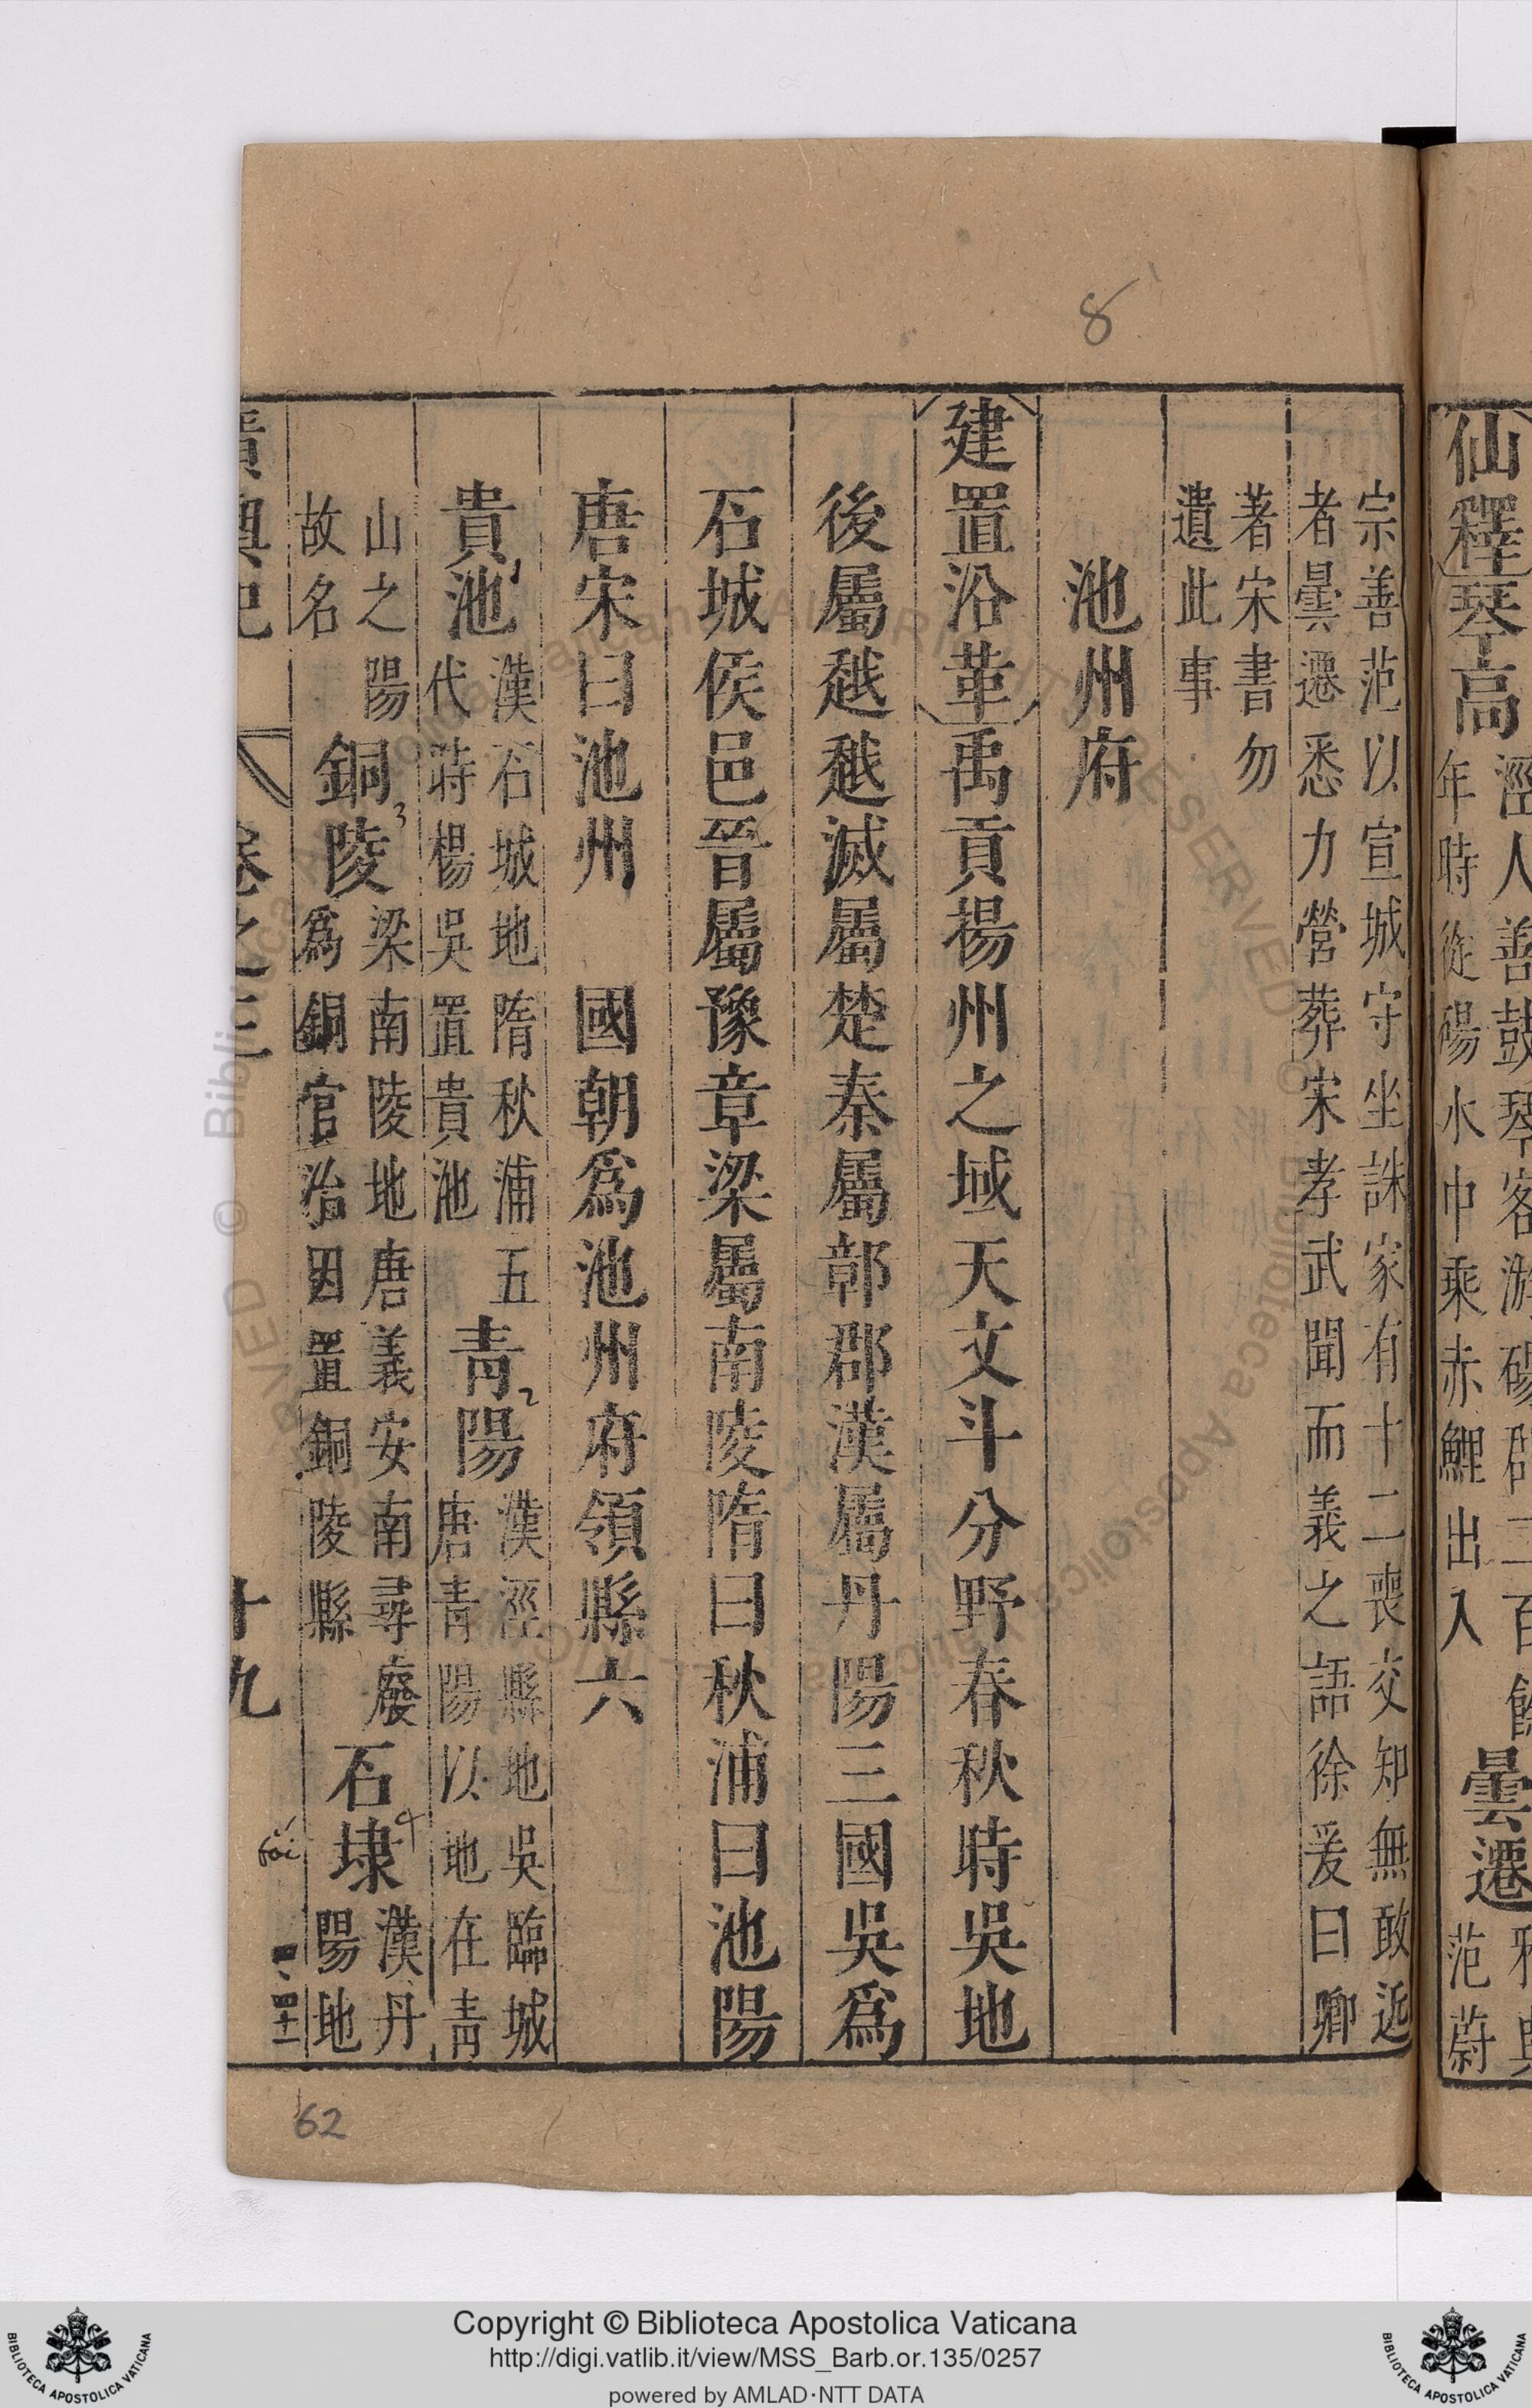 仙釋琴高
涇人善鼓琴客游碭郡二百餘
年時從碭水中乘赤鯉出入
曇遷
范蔚
宗善范以宣城守坐誅家有十二喪交知無敢近
者曇遷悉力營葬宋孝武聞而義之語徐爰曰卿
著宋書勿
遺此事
池州府
建置沿革禹貢揚州之域天文斗分野春秋時吳地
後屬越越滅屬楚秦屬鄣郡漢屬丹陽三國吳為
石城侯邑晉屬豫章梁屬南陵隋曰秋浦曰池陽
唐宋曰池州 國朝為池州府領縣六
貴池
漢石城地隋秋浦五
代時楊吳置貴池
青陽
漢涇縣地吳臨城
唐青陽以地在青
山之陽
故名
銅陵
梁南陵地唐義安南尋廢
為銅官治因置銅陵縣
石埭
漢丹
陽地
廣輿記 卷之三 十九
8
1
2
3
4
62
Copyright © Biblioteca Apostolica Vaticana
http://digi.vatlib.it/view/MSS_Barb.or.135/0257
powered by AMLAD·NTT DATA
BIBLIOTECA APOSTOLICA VATICANA
BIBLIOTECA APOSTOLICA VATICANA